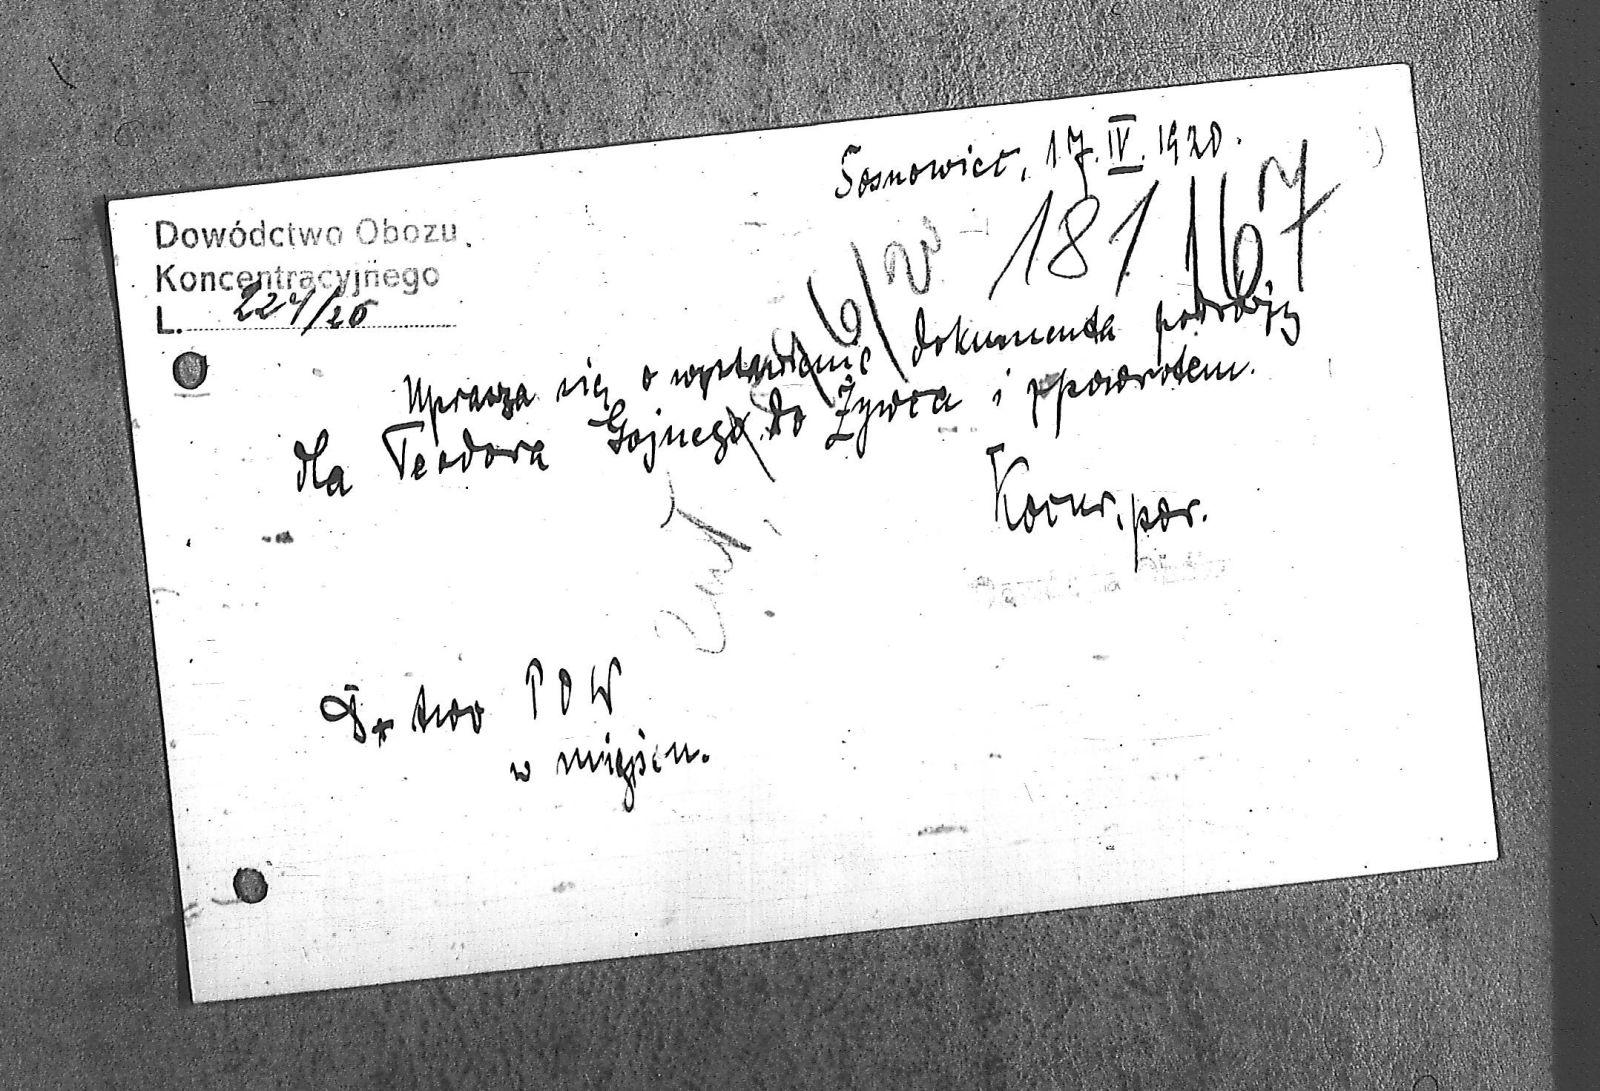 Sosnowice, 17.IV.1920.
181 167
Dowództwo Obozu
Koncentracyjnego
L. 224/20
Uprasza się o wystawienie dokumenta podróży
dla Teodora Gojnego do Żywca i zpowrotem.
Kocur, por.
D-two POW
w miejscu.